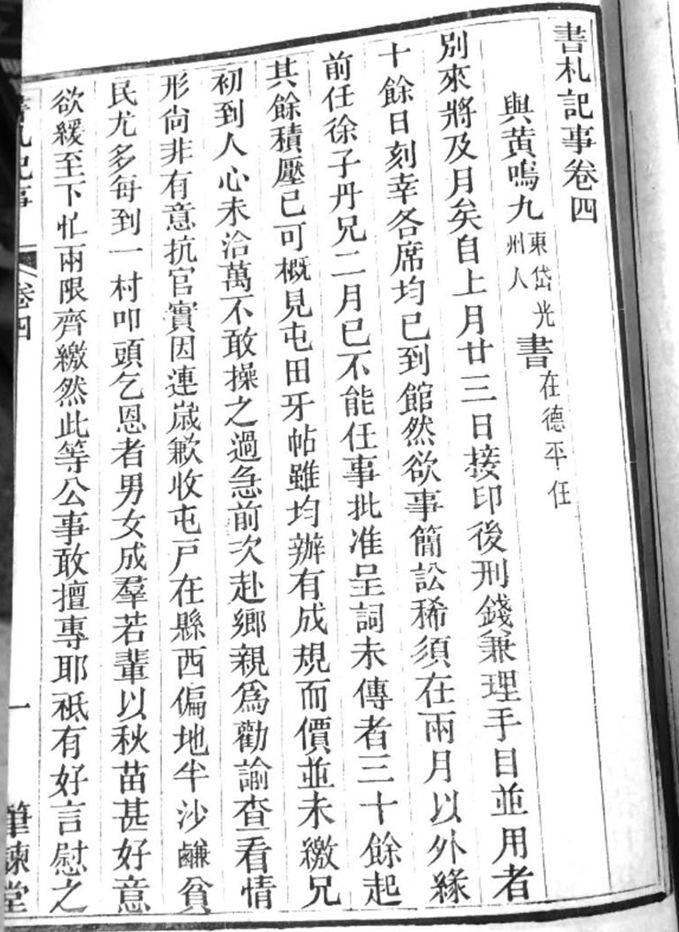 書札記事卷四
與黃鳴九東岱光州人書在德平任
別來將及月矣自上月廿三日接印後刑錢兼理手目並用者
十餘日刻幸各席均已到館然欲事簡訟稀須在兩月以外緣
前任徐子丹兄二月已不能任事批准呈詞未傳者三十餘起
其餘積壓已可概見屯田牙帖雖均辦有成規而價並未繳兄
初到人心未洽萬不敢操之過急前次赴鄉親為勸諭查看情
形尙非有意抗官實因連歲歉收屯戶在縣西偏地半沙鹻貧
民尤多每到一村叩頭乞恩者男女成羣若輩以秋苗甚好意
欲緩至下忙兩限齊繳然此等公事敢擅專耶祗有好言慰之
書札記事
卷四
一
筆諫堂